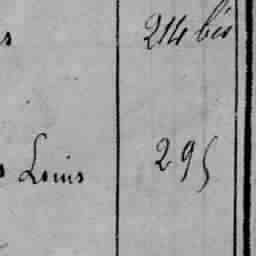 s 214 bis
s Louis 295